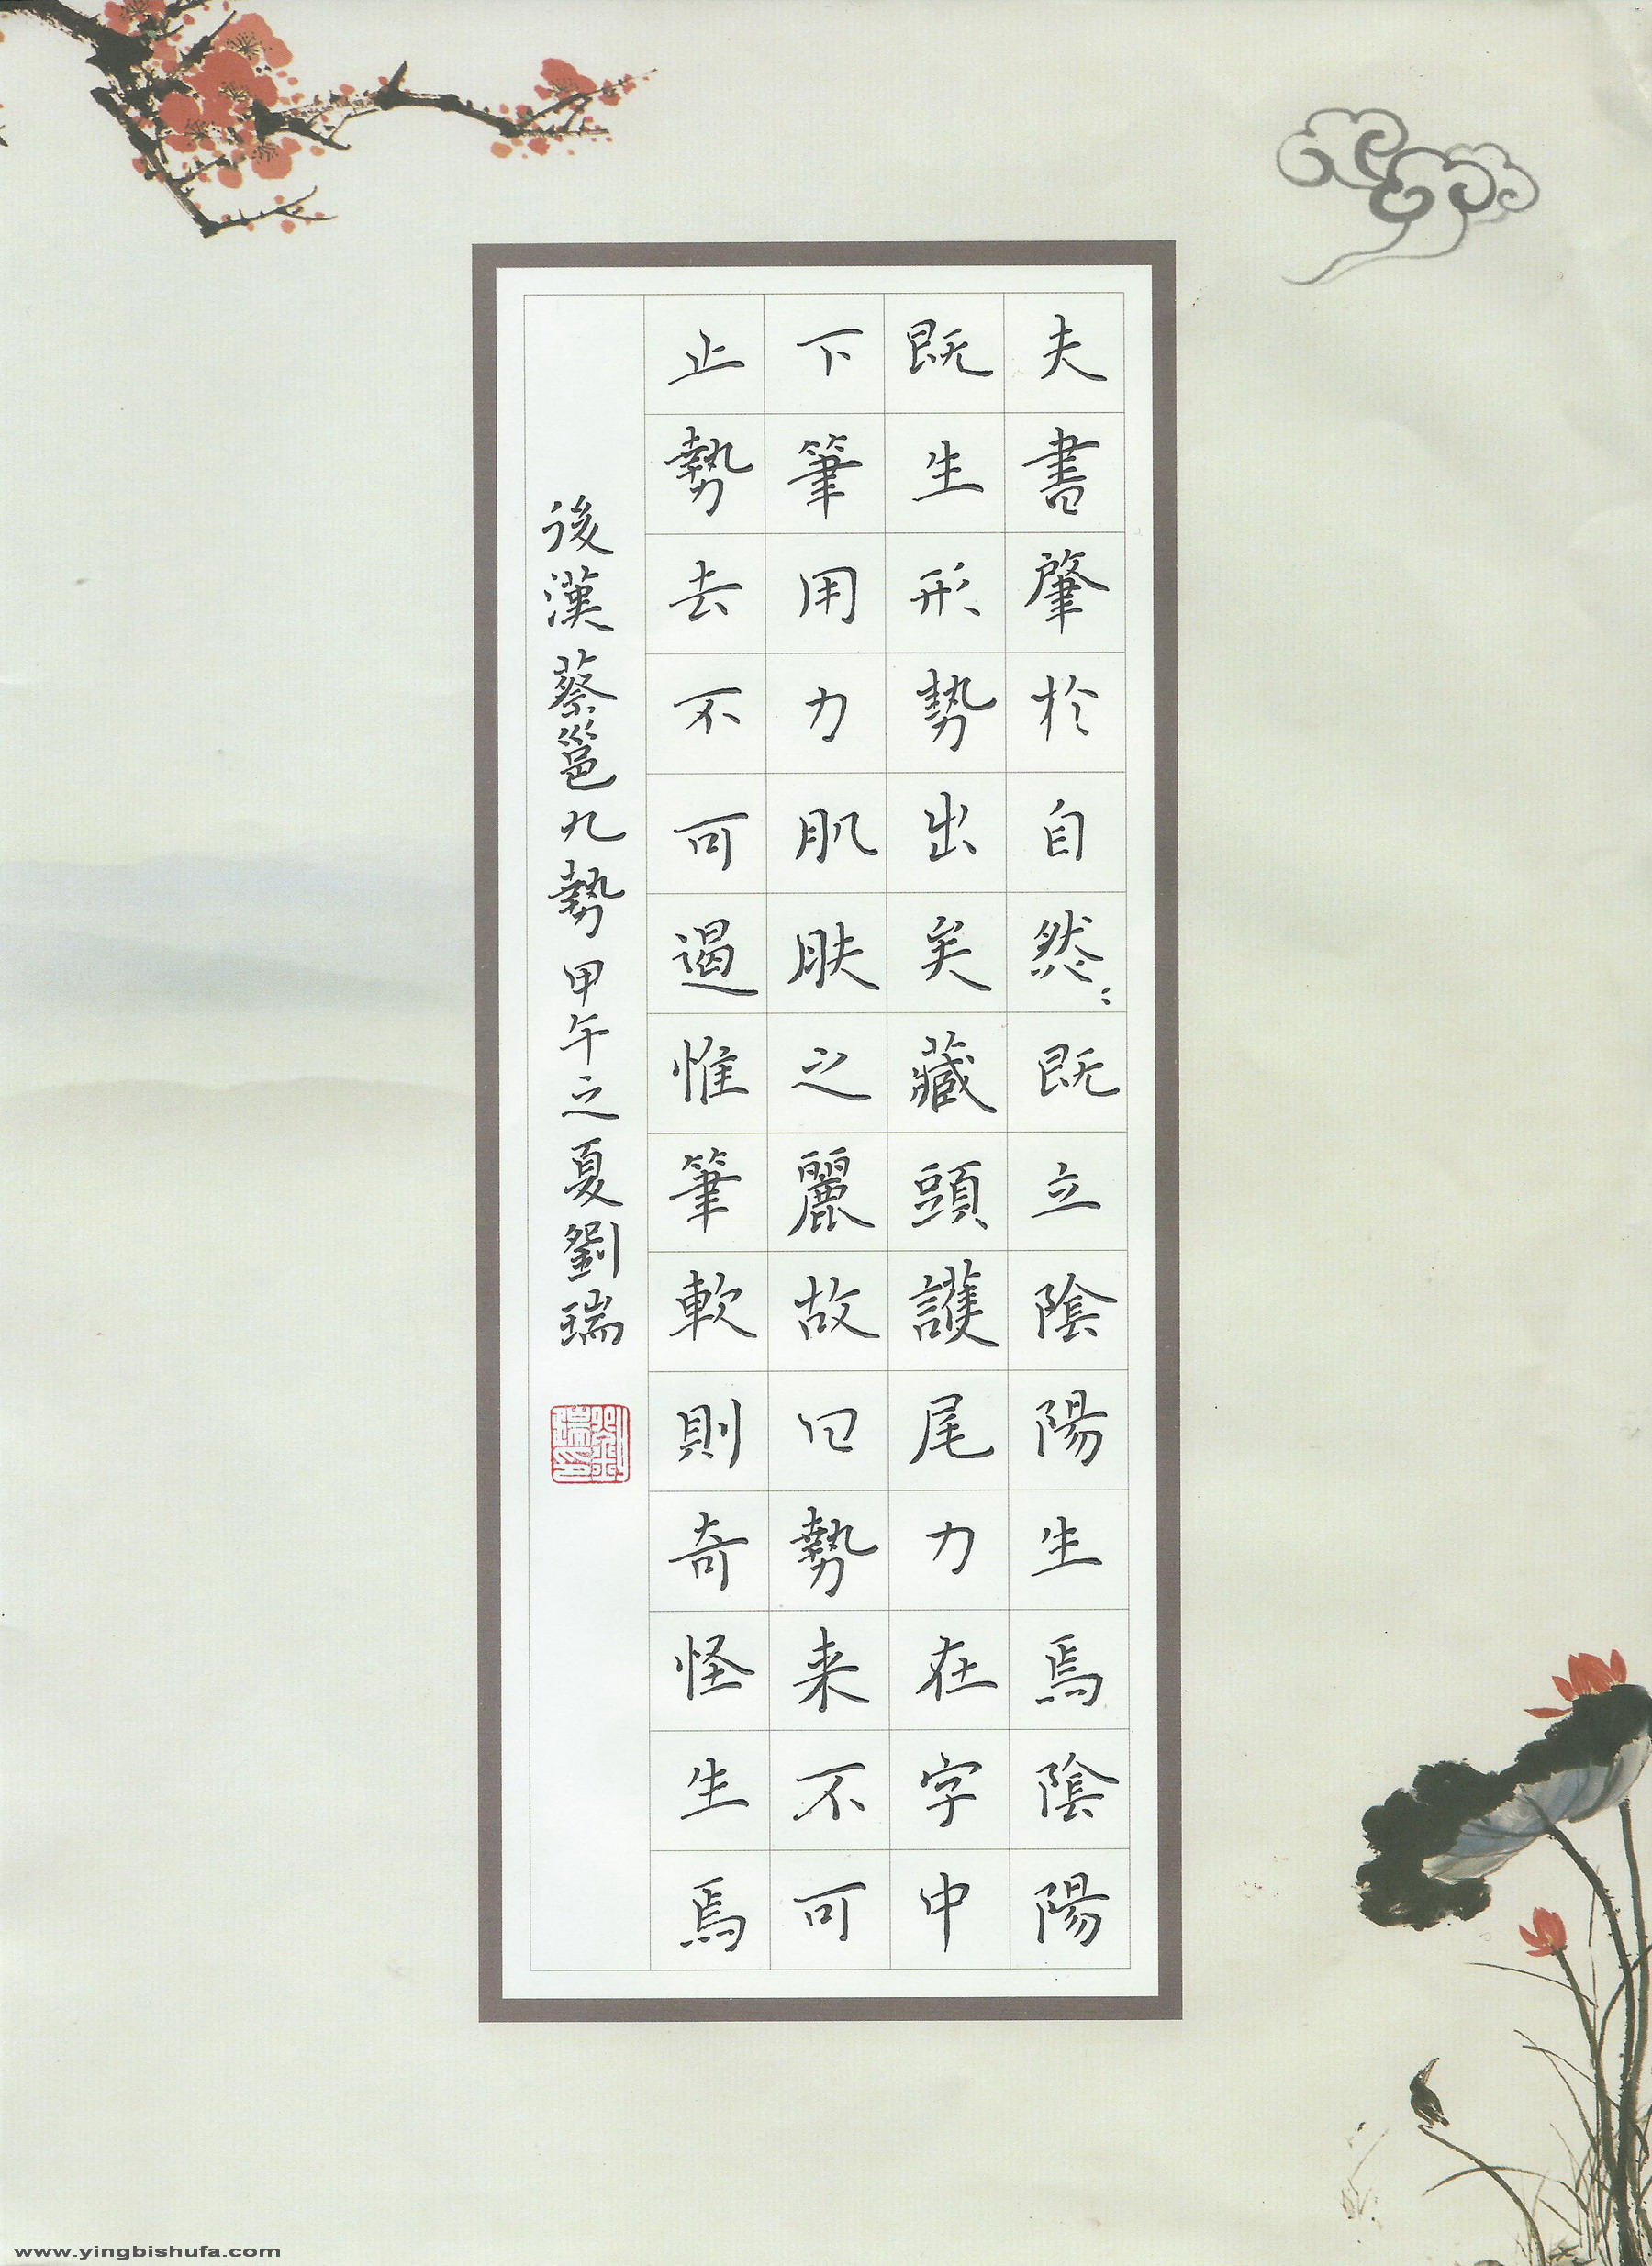 夫書肇於自然〻既立陰陽生焉陰陽
既生形勢出矣藏頭護尾力在字中
下筆用力肌膚之麗故曰勢来不可
止勢去不可遏惟筆軟則奇怪生焉
後漢蔡邕九勢甲午之夏劉瑞
劉瑞印
www.yingbishufa.com